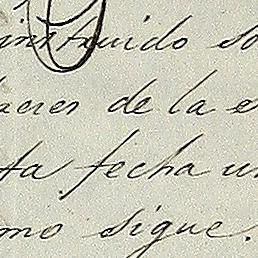 instruido so
aces de la e
ta fecha u
mo sigue.